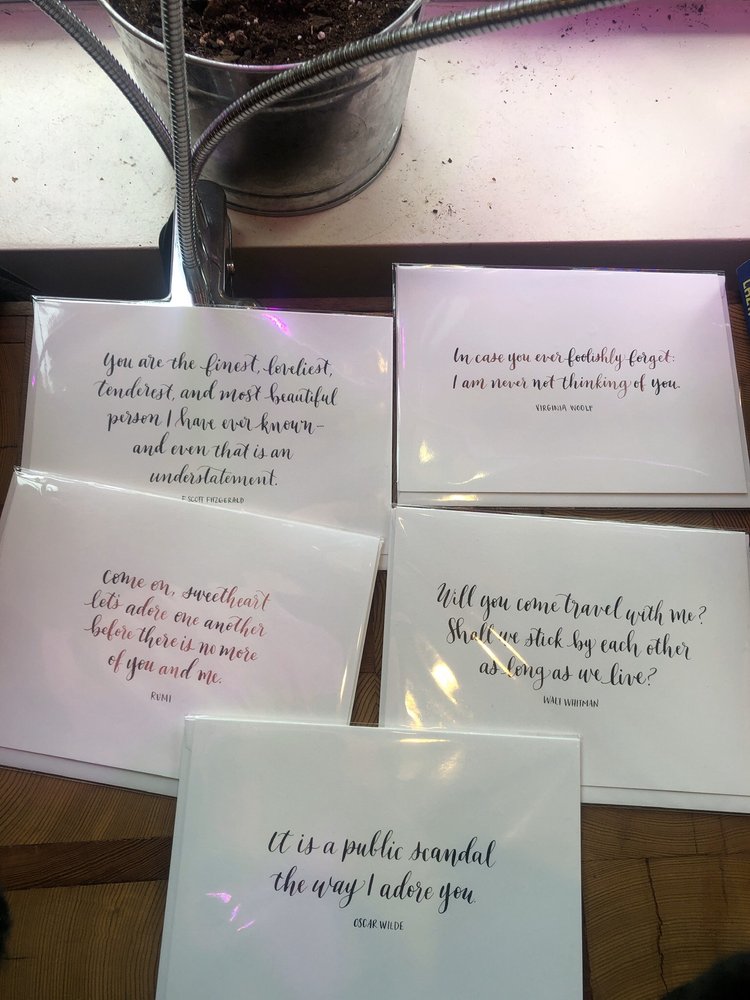 You are the finest, loveliest,
tenderest, and most beautiful
person I have ever known–
and even that is an
understatement.
F. SCOTT FITZGERALD
In case you ever foolishly forget:
I am never not thinking of you.
VIRGINIA WOOLF
Come on, sweetheart
let's adore one another
before there is no more
of you and me.
RUMI
Will you come travel with me?
Shall we stick by each other
as long as we live?
WALT WHITMAN
It is a public scandal
the way I adore you.
OSCAR WILDE